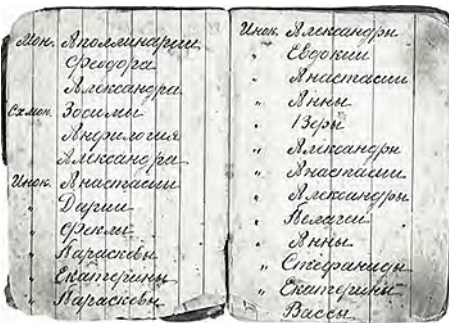 Мон. Аполлинарии
Феодора
Александра
Сх.мон. Зосимы
Анфилогия
Александра
Инок. Анастасии
" Дарии
" Феклы
" Парасковы
" Екатерины
" Парасковы
Инок. Александры
" Евдокии
" Анастасии
" Анны
" Веры
" Александры
" Анастасии
" Александры
" Пелагеи
" Анны
" Стефаниды
" Екатерины
" Вассы